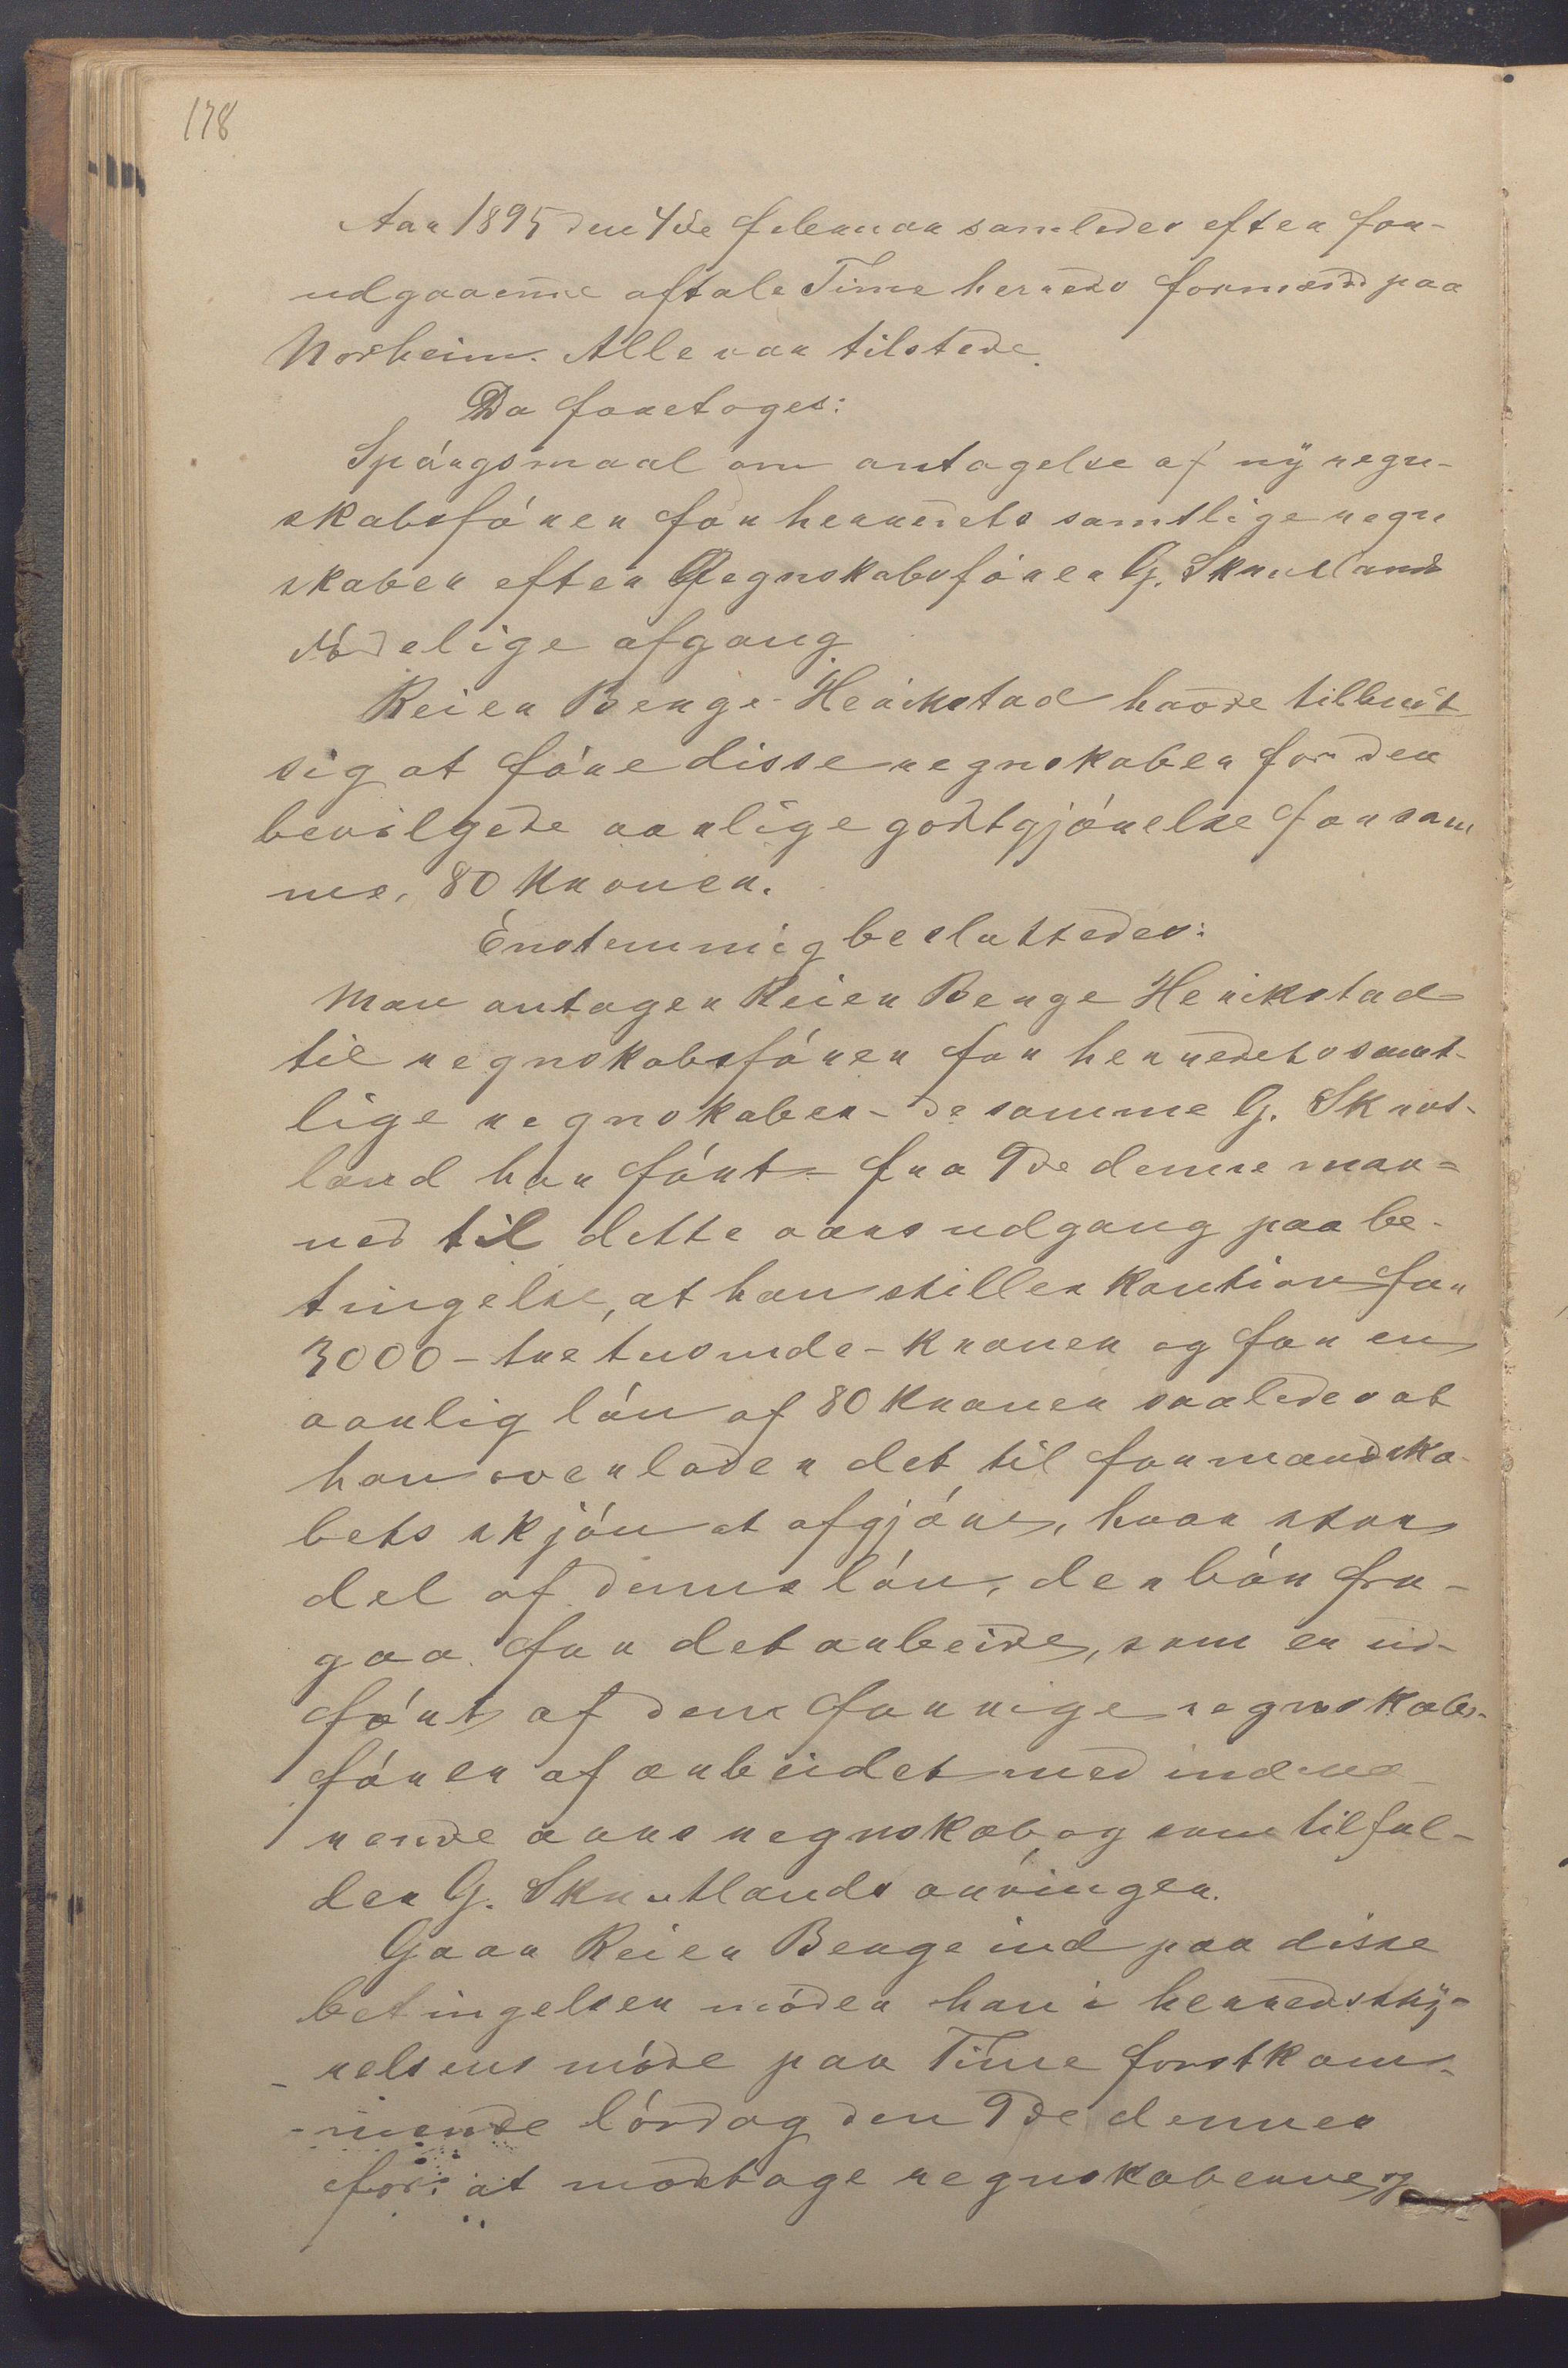 178
Aar 1895 den 4de februar samledes efter for-
udgaaende aftale Time herreds formænd paa
Norheim. Alle var tilstede.
Da foretoges:
Spórgsmaal om antagelse af ny regn-
skabsfórer for herredets samtlige regn
skaber efter Regnskabsfórer G. Skrudlands
dódelige afgang.
Reier Berge-Herikstad havde tilbudt
sig at fóre disse regnskaber for den
bevilgede aarlige godtgjórelse for sam
me, 80 kroner.
Énstemmig besluttedes:
Man antager Reier Berge Herikstad
til regnskabsfórer for herredets samt-
lige regnskaber – de samme G. Skrut-
land har fórt – fra 9de denne maa-
ned til dette aars udgang paa be-
tingelse, at han stiller kaution for
3000 – tre tusinde – kroner og for en
aarlig lón af 80 kroner saaledes at
han overlader det til formandska-
bets skjón at afgjóre, hvor stor
del af denne lón, der bór fra-
gaa for det arbeide, som er ud-
fórt af den forrige regnskabs-
fórer af arbeidet med indeve-
rende aars regnskab, og som tilfal-
der G. Skrutlands arvinger.
Gaar Reier Berge ind paa disse
betingelser móder han i herredssty-
relsens móde paa Time forstkom-
mende lórdag den 9de dennes
for at modtage regnskaberne og